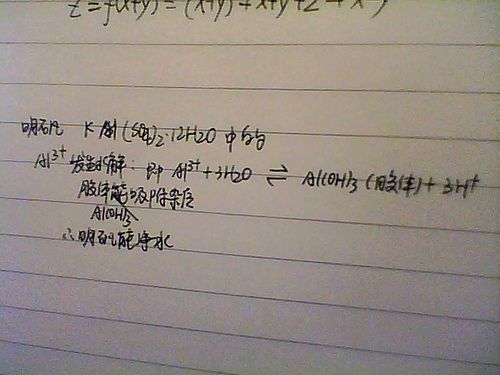 z = f(x+y) = (x+y) + x+y+2
明矾 KAl(SO4)2·12H2O 中的
Al³⁺ 发生水解. 即 Al³⁺ + 3H2O ⇌ Al(OH)3 (胶体) + 3H⁺
胶体能吸附杂质
Al(OH)3
∴明矾能净水